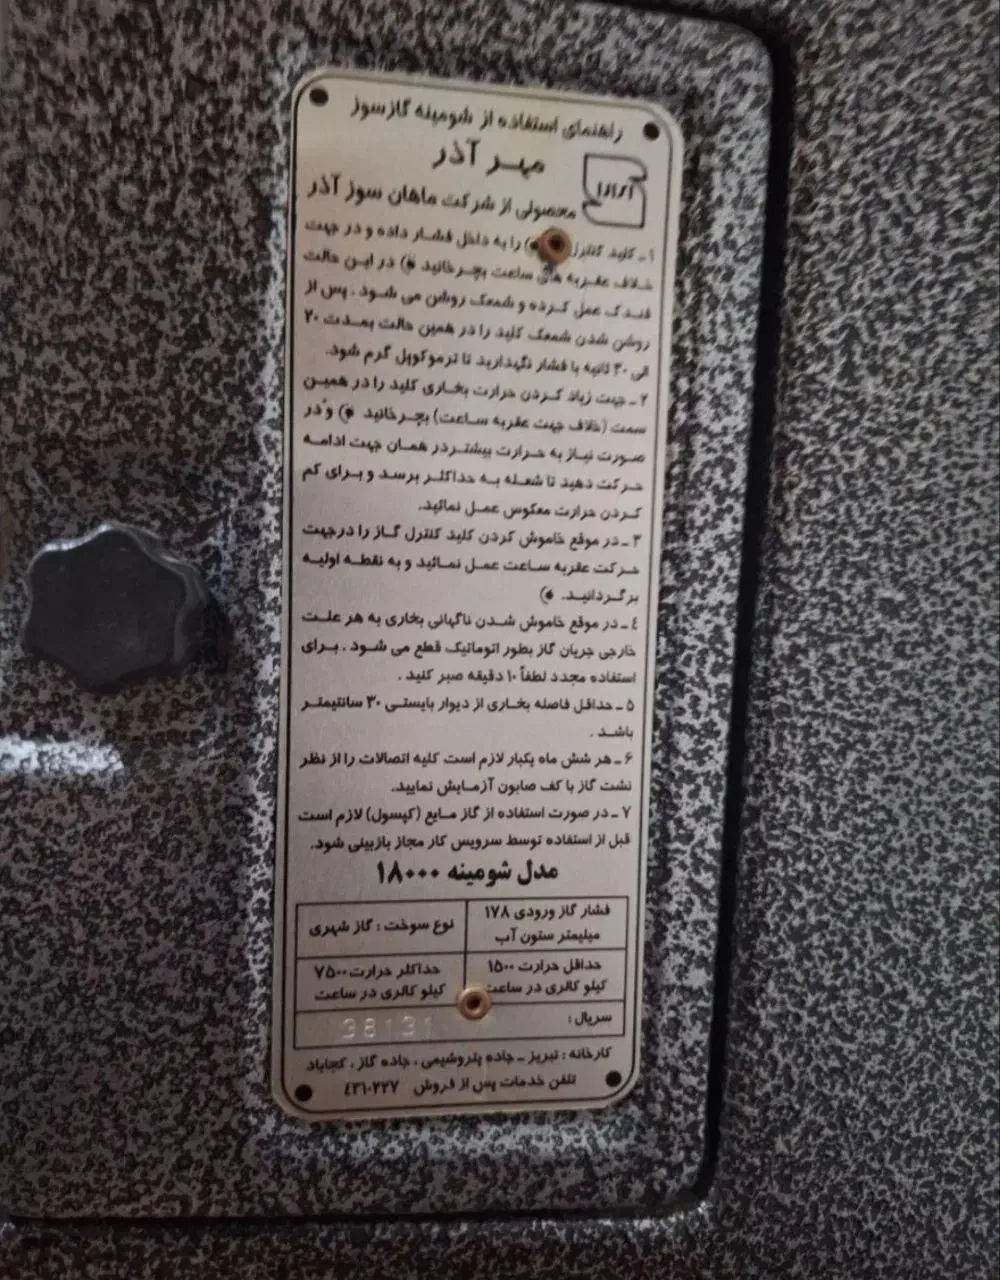 راهنمای استفاده از شومینه گازسوز
مهر آذر
محصولی از شرکت ماهان سوز آذر
۱ـ کلید کنترل را به داخل فشار داده و در جهت
خلاف عقربه های ساعت بچرخانید در این حالت
فندک عمل کرده و شمعک روشن می شود . پس از
روشن شدن شمعک کلید را در همین حالت بمدت ۲۰
الی ۳۰ ثانیه با فشار نگهدارید تا ترموکوپل گرم شود.
۲ـ جهت زیاد کردن حرارت بخاری کلید را در همین
سمت (خلاف جهت عقربه ساعت) بچرخانید و در
صورت نیاز به حرارت بیشتردر همان جهت ادامه
حرکت دهید تا شعله به حداکثر برسد و برای کم
کردن حرارت معکوس عمل نمائید.
۳ـ در موقع خاموش کردن کلید کنترل گاز را درجهت
حرکت عقربه ساعت عمل نمائید و به نقطه اولیه
برگردانید.
٤ـ در موقع خاموش شدن ناگهانی بخاری به هر علت
خارجی جریان گاز بطور اتوماتیک قطع می شود . برای
استفاده مجدد لطفاً ۱۰ دقیقه صبر کنید .
۵ـ حداقل فاصله بخاری از دیوار بایستی ۳۰ سانتیمتر
باشد .
۶ـ هر شش ماه یکبار لازم است کلیه اتصالات را از نظر
نشت گاز با کف صابون آزمایش نمایید.
۷ـ در صورت استفاده از گاز مایع (کپسول) لازم است
قبل از استفاده توسط سرویس کار مجاز بازبینی شود.
مدل شومینه ۱۸۰۰۰
فشار گاز ورودی ۱۷۸
میلیمتر ستون آب
نوع سوخت : گاز شهری
حداقل حرارت ۱۵۰۰
کیلو کالری در ساعت
حداکثر حرارت ۷۵۰۰
کیلو کالری در ساعت
سریال : 38131
کارخانه : تبریز ـ جاده پتروشیمی ، جاده گاز ، کجاباد
تلفن خدمات پس از فروش ٤٣١٠٢٢٧